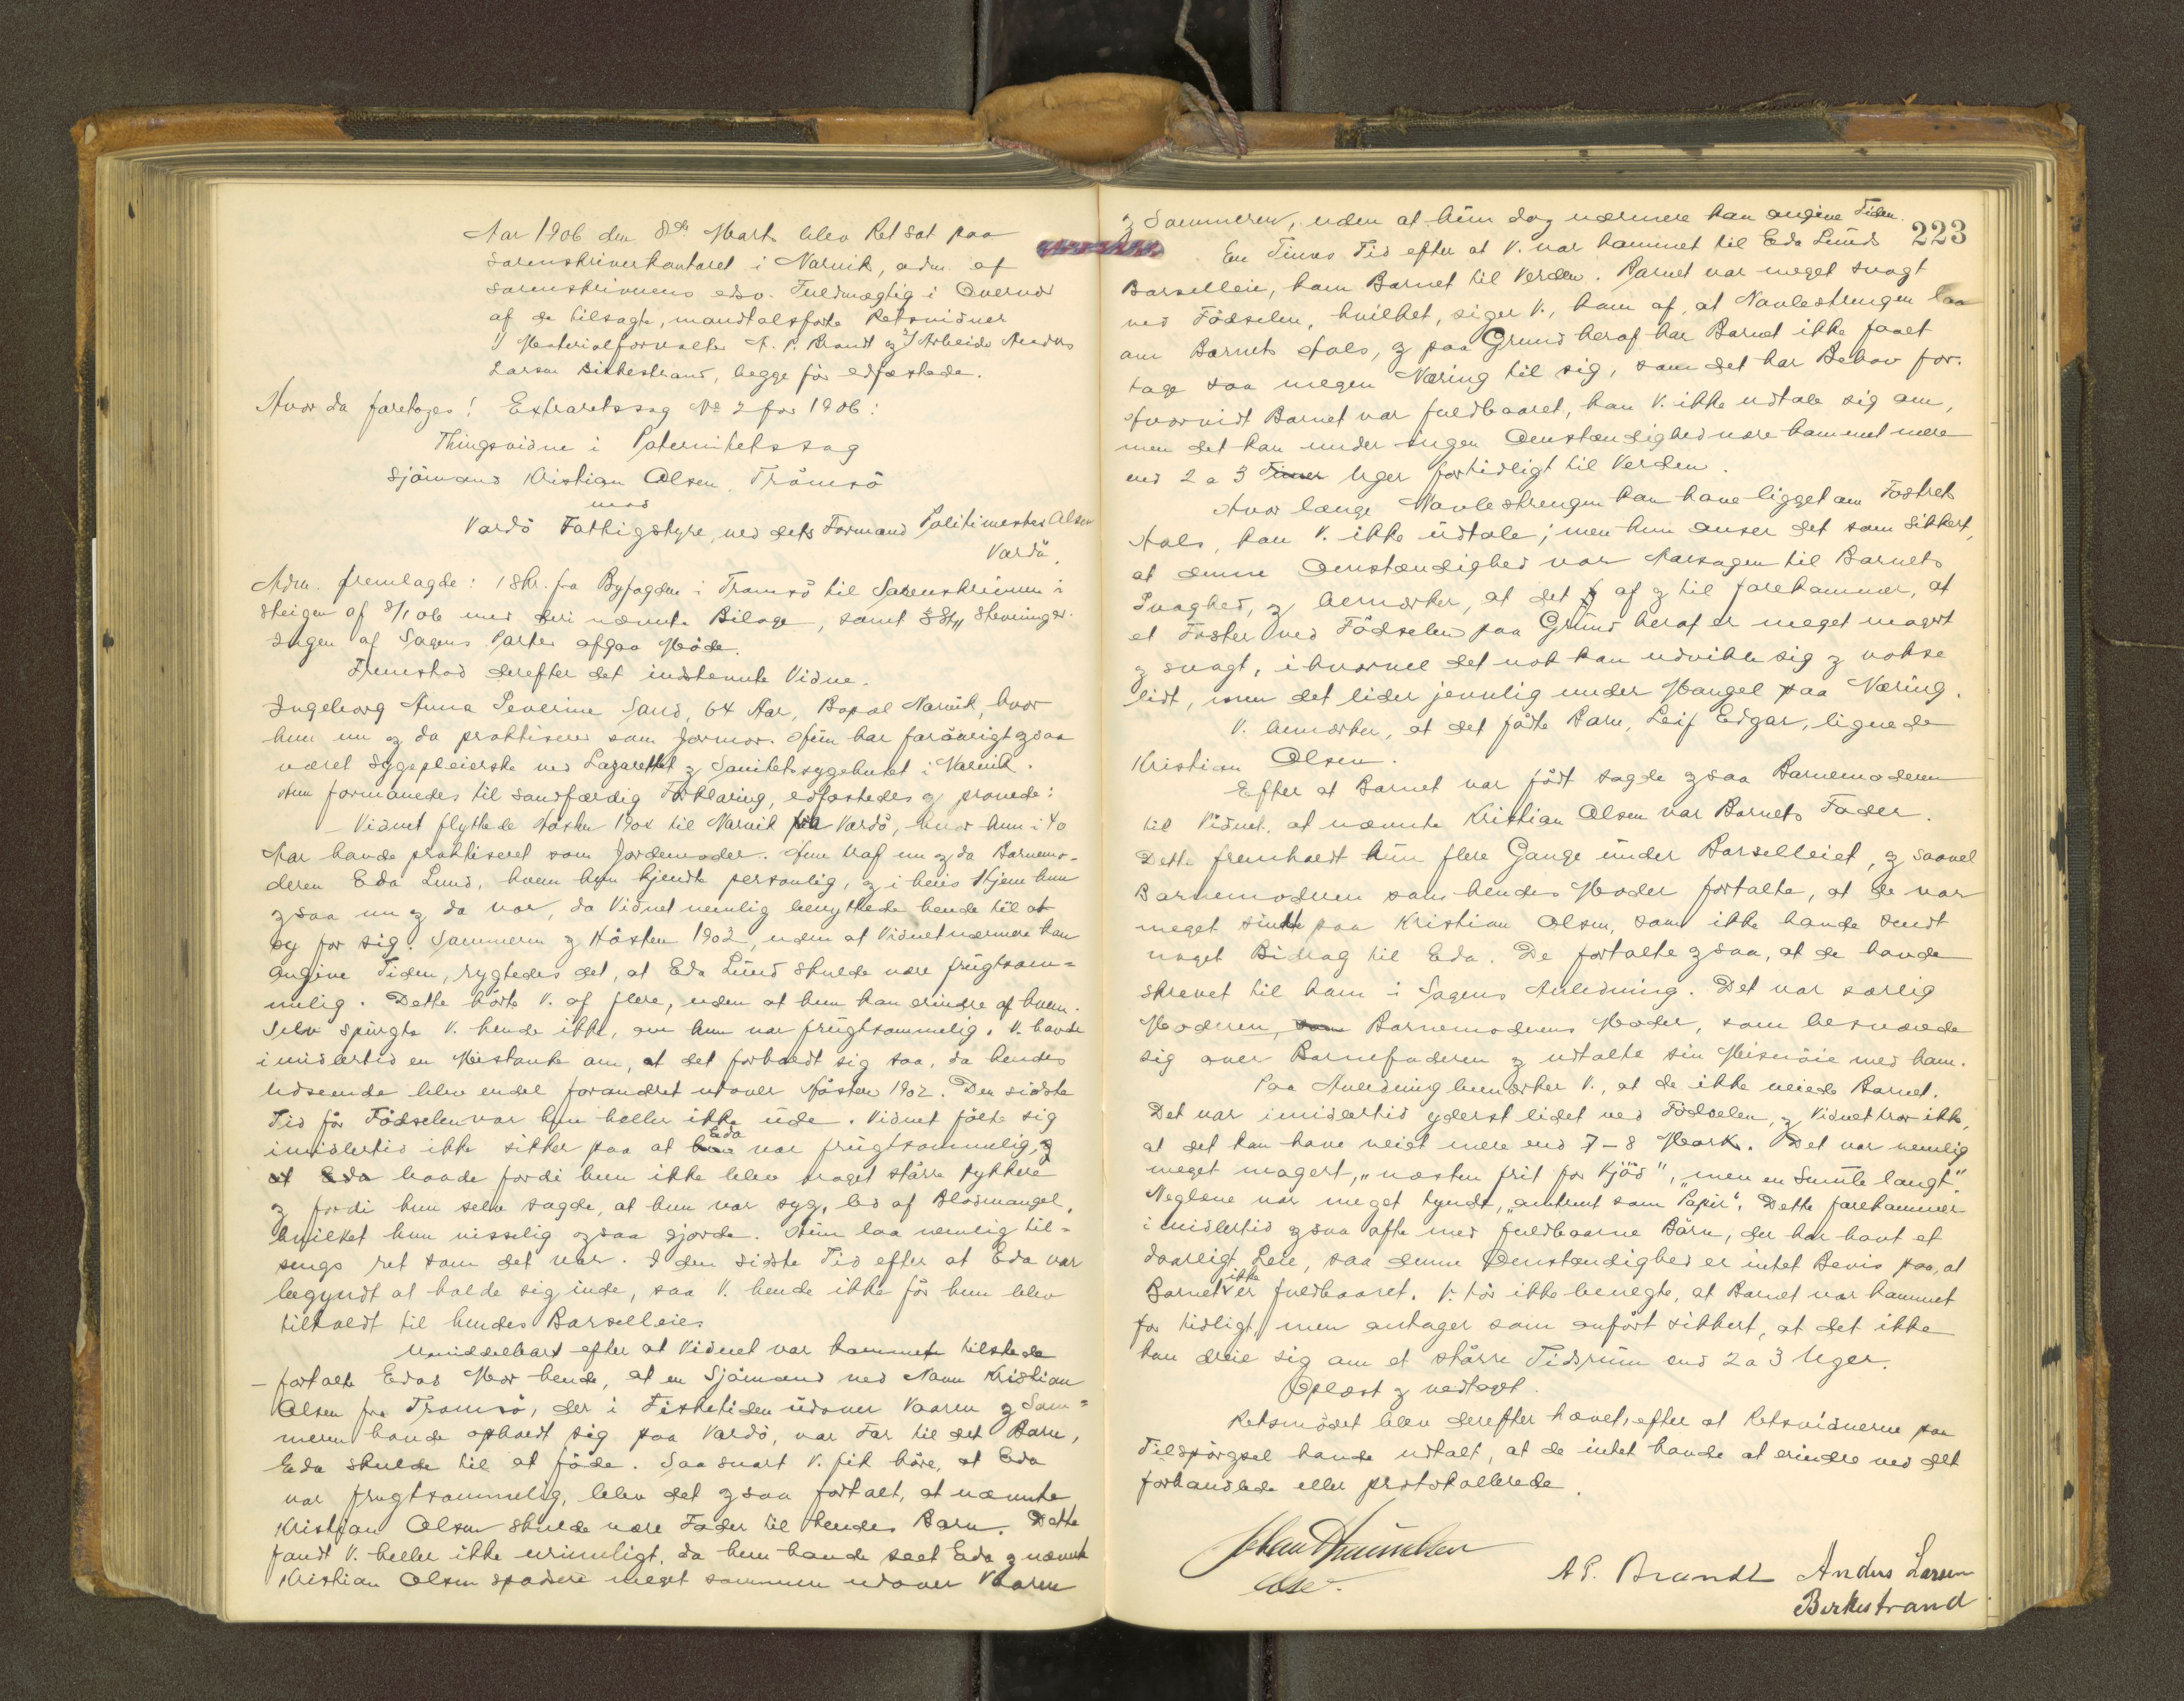 Aar 1906 den 8de Marts blev Ret sat paa
Sorenskriverkontoret i Narvik, adm. af
Sorenskriverens edsv. Fuldmægtig i Overvær
af de tilsagte, mandtalsførte Retsvidner
1/ Materialforvalter A. P. Brandt og 2/ Arbeider Anders
Larsen Birkestrand, begge før edfæstede.
Hvor da foretoges: Extraretssag No 2 for 1906:
Thingsvidne i Paternitetssag
Sjømand Kristian Olsen, Tromsø
mod
Vardø Fattigstyre, ved dets Formand Politimester Olsen
Vardø.
Adm. fremlagde: 1 Skr. fra Byfogden i Tromsø til Sorenskriveren i
Steigen af 8/1 06 med deri nævnte Bilage, samt 3 St. Stevninger.
Ingen af Sagens Parter afgav Møde.
Fremstod derefter det indstevnte Vidne.
Ingeborg Anna Severine Sand, 64 Aar, Bopæl Narvik, hvor
hun nu og da praktiserer som Jormor. Hun har forøvrigt ogsaa
været Sygepleierske ved Lazarettet og Sanitetssygehuset i Narvik.
Hun formanedes til sandfærdig Forklaring, edfæstedes og provede:
– Vidnet flyttede Høsten 1904 til Narvik fra Vardø, hvor hun i 40
Aar havde praktiseret som Jordemoder. Hun traf nu og da Barnemo-
deren Eda Lund, hvem hun kjendte personlig, og i hvis Hjem hun
ogsaa nu og da var, da Vidnet nemlig benyttede hende til at
sy for sig. Sommeren og Høsten 1902, uden at Vidnet nærmere kan
angive Tiden, rygtedes det, at Eda Lund skulde være frugtsom-
melig. Dette hørte V. af flere, uden at hun kan erindre af hvem.
Selv spurgte V. hende ikke, om hun var frugtsommelig. V. havde
imidlertid en Mistanke om, at det forholdt sig saa, da hendes
Udseende blev endel forandret utover Høsten 1902. Den sidste
Tid før Fødselen var hun heller ikke ude. Vidnet følte sig
imidlertid ikke sikker paa at Eda var frugtsommelig, og
at Eda havde fordi hun ikke blev noget større tykkere
og fordi hun selv sagde, at hun var syg, led af Blodmangel,
hvilket hun visselig ogsaa gjorde. Hun laa nemlig til-
sengs ret som det var. I den sidste Tid efter at Eda var
begyndt at holde sig inde, saa V. hende ikke før hun blev
tilkaldt til hendes Barselleie.
Umiddelbart efter at Vidnet var kommet tilstede
– fortalte Edas Mor hende, at en Sjømand ved Navn Kristian
Olsen fra Tromsø, der i Fisketiden udover Vaaren og Som-
meren havde opholdt sig paa Vardø, var Far til det Barn,
Eda skulde til at føde. Saa snart V. fik høre, at Eda
var frugtsommelig, blev det ogsaa fortalt, at nævnte
Kristian Olsen skulde være Fader til hendes Barn. Dette
fandt V. heller ikke urimeligt, da hun havde seet Eda og nævnte
Kristian Olsen spadsere meget sammen udover Vaaren
223
og Sommeren, uden at hun dog nærmere kan angive Tiden.
En Times Tid efter at V. var kommet til Eda Lunds
Barselleie, kom Barnet til Verden. Barnet var meget svagt
ved Fødselen, hvilket, siger V., kom af, at Navlestrengen laa
om Barnets Hals, og paa Grund heraf har Barnet ikke faaet
tage saa megen Næring til sig, som det har Behov for.
Hvorvidt Barnet var fuldbaaret, kan V. ikke udtale sig om,
men det kan under ingen Omstændighed være kommet mere
end 2 a 3 Timer Uger fortidligt til Verden.
Hvor længe Navlestrengen kan have ligget om Fostrets
Hals, kan V. ikke udtale; men hun anser det som sikkert,
at denne Omstændighed var Aarsagen til Barnets
Svaghed, og bemærker, at det af og til forekommer, at
et Foster ved Fødselen paa Grund heraf er meget magert
og svagt, ihvorvel det nok kan udvikle sig og vokse
lidt, men det lider jevnlig under Mangel paa Næring.
V. bemærker, at det fødte Barn, Leif Edgar, lignede
Kristian Olsen.
Efter at Barnet var født sagde ogsaa Barnemoderen
til Vidnet, at nævnte Kristian Olsen var Barnets Fader.
Dette fremholdt hun flere Gange under Barselleiet, og saavel
Barnemoderen som hendes Moder fortalte, at de var
meget sinte paa Kristian Olsen, som ikke havde sendt
noget Bidrag til Eda. De fortalte ogsaa, at de havde
skrevet til ham i Sagens Anledning. Det var særlig
Moderen, som Barnemoderens Moder, som besværede
sig over Barnefaderen og udtalte sin Misnøie med ham.
Paa Anledning bemærker V., at de ikke veiede Barnet.
Det var imidlertid yderst lidet ved Fødselen, og Vidnet tror ikke,
at det kan have veiet mere end 7 – 8 Mark. Det var nemlig
meget magert, „næsten frit for Kjød“, „men en Smule langt“.
Neglene var meget tynde, „omtrent som Papir“. Dette forekommer
imidlertid ogsaa ofte med fuldbaarne Børn, der har havt et
daarligt Leie, saa denne Omstændighed er intet Bevis paa, at
Barnet ikke er fuldbaaret. V. tør ikke benegte, at Barnet var kommet
for tidligt, men antager som anført sikkert, at det ikke
kan dreie sig om et større Tidsrum end 2 a 3 Uger.
Oplæst og vedtaget.
Retsmødet blev derefter hævet, efter at Retsvidnerne paa
Tilspørgsel havde udtalt, at de intet havde at erindre ved det
forhandlede eller protokollerede.
A P. Brandt Anders Larsen
Birkestrand